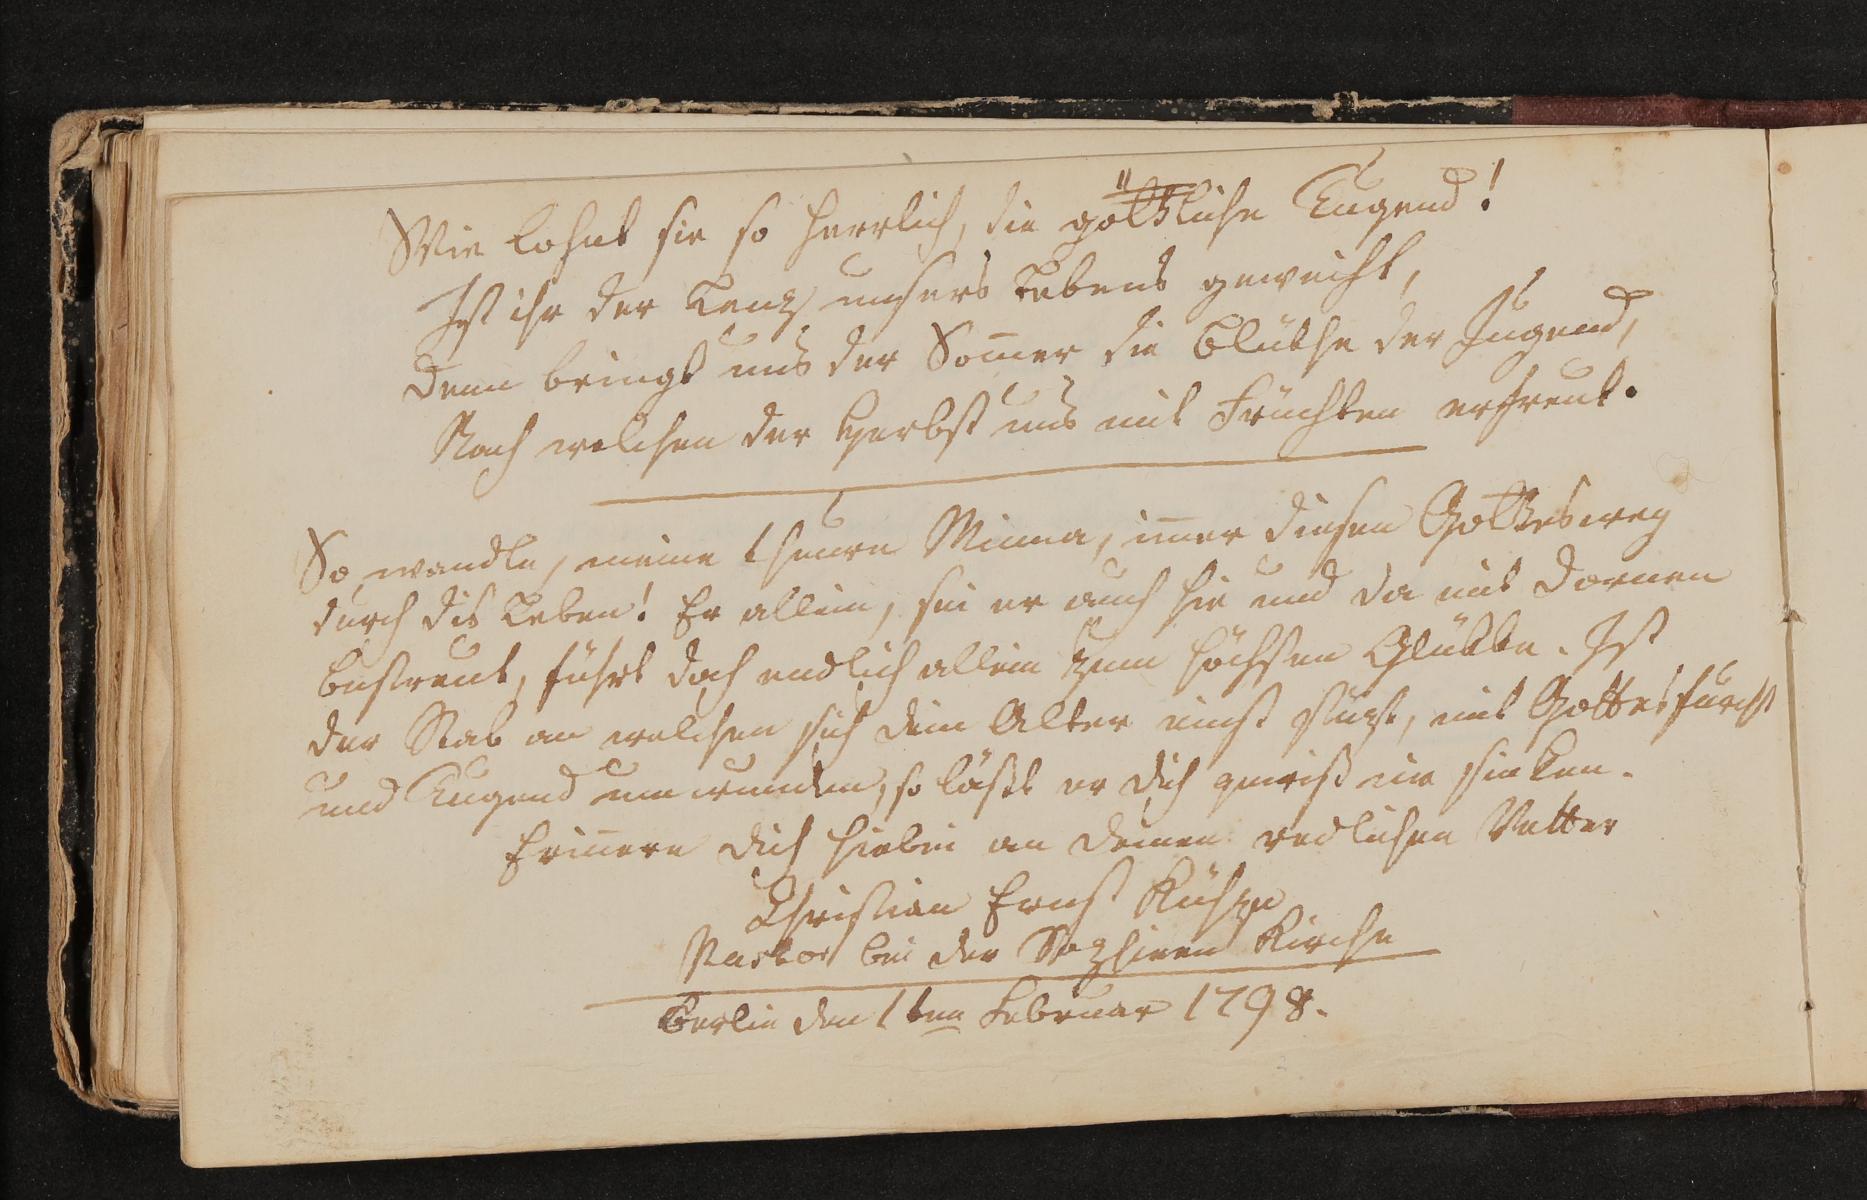 Wie lohnt sie so herrlich, die göttliche Tugend!
Ist ihr der Lenz unsers Lebens geweiht,
Denn bringt uns der Som̅er die Blüthe der Jugend,
Nach welchen der Herbst uns mit Früchten erfreut.
So wandle, meine theure Minna, im̅er diesen Gottesweg
durch dis Leben! Er allein, sei er auch hie und da mit Dornen
bestreut, führt doch endlich allein zum höchsten Glükke. Ist
der Stab an welchen sich dein Alter einst stüzt, mit Gottesfurcht
und Tugend umwunden, so läßt er dich gewiß nie sinken.
Erin̅ere dich hiebei an deinen redlichen Vetter
Christian Ernst
Pastor bei der Sophienen Kirche
Berlin den 1ten Februar 1798.